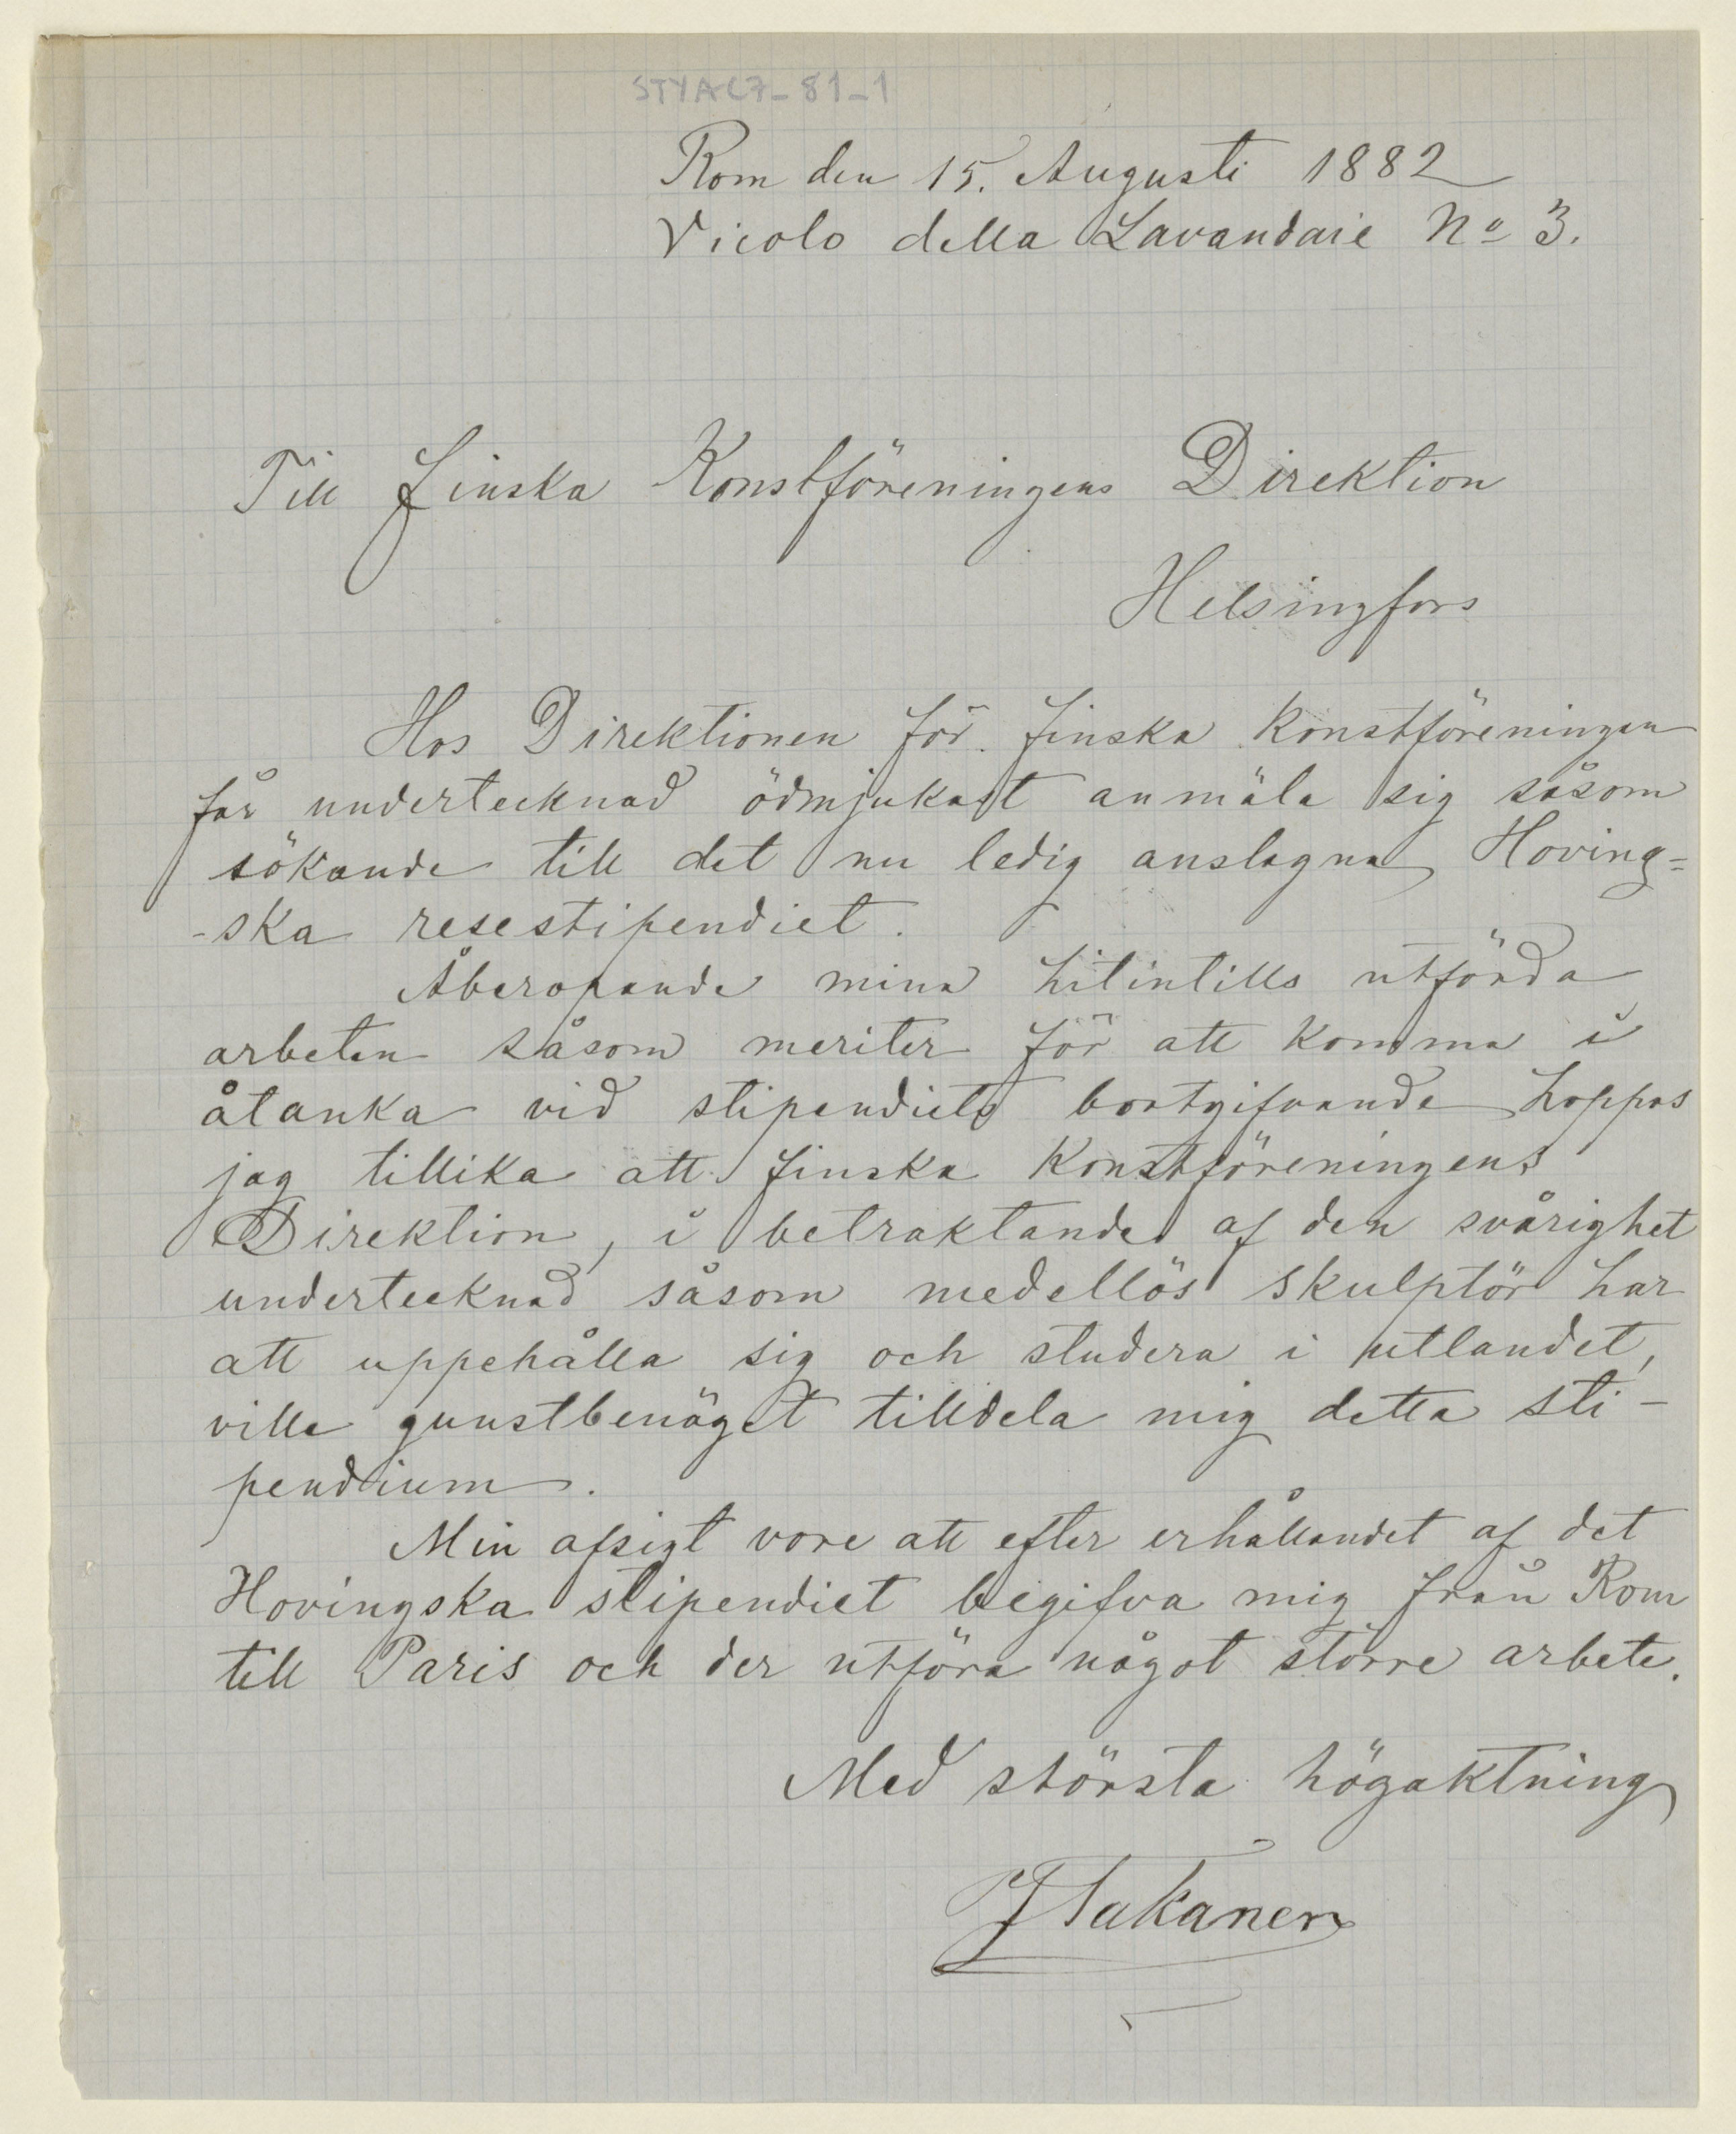 STYA C7-81-1
Rom den 15. Augusti 1882
Vicolo della Lavandaie No 3.
Till Finska Konstföreningens Direktion
Helsingfors
Hos Direktionen för Finska Konstföreningen
får undertecknad ödmjukast anmäla sig såsom
sökande till det nu ledig anslagna Hoving=
-ska resestipendiet.
Åberopande mina hitintills utförda
arbeten såsom meriter för att komma i
åtanka vid stipendiets bortgifvande hoppas
jag tillika att Finska Konstföreningens
Direktion, i betraktande af den svårighet
undertecknad såsom medellös skulptör har
att uppehålla sig och studera i utlandet,
ville gunstbenäget tilldela mig detta sti-
pendium.
Min afsigt vore att efter erhållandet af det
Hovingska stipendiet begifva mig från Rom
till Paris och der utföra något större arbete.
Med största högaktning
J Takanen